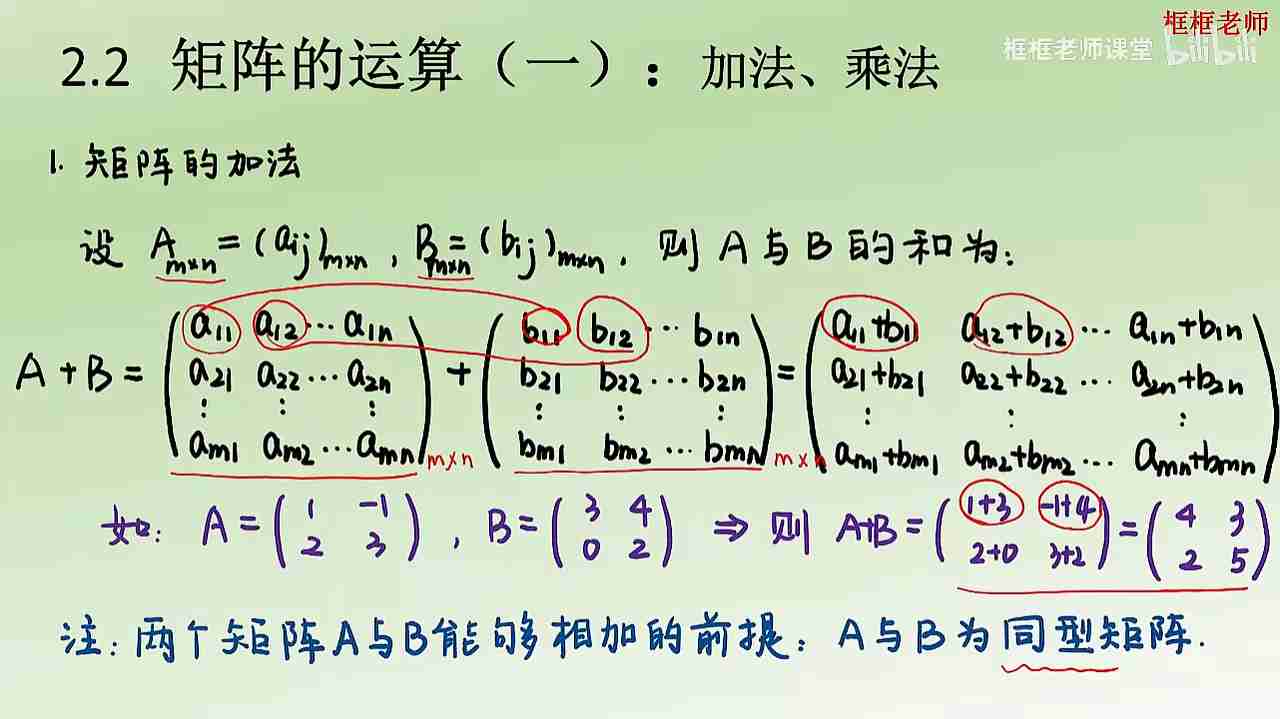 框框老师
框框老师课堂 bilibili
2.2 矩阵的运算（一）：加法、乘法
1. 矩阵的加法
设 Aₘₓₙ = (aij)ₘₓₙ , Bₘₓₙ = (bij)ₘₓₙ . 则 A 与 B 的和为:
A + B = ( a11 a12 ⋯ a1n ; a21 a22 ⋯ a2n ; ⋮ ⋮ ⋮ ; am1 am2 ⋯ amn )m×n + ( b11 b12 ⋯ b1n ; b21 b22 ⋯ b2n ; ⋮ ⋮ ⋮ ; bm1 bm2 ⋯ bmn )m×n = ( a11+b11 a12+b12 ⋯ a1n+b1n ; a21+b21 a22+b22 ⋯ a2n+b2n ; ⋮ ⋮ ⋮ ; am1+bm1 am2+bm2 ⋯ amn+bmn )
如: A = ( 1 -1 ; 2 3 ) , B = ( 3 4 ; 0 2 ) ⇒ 则 A+B = ( 1+3 -1+4 ; 2+0 3+2 ) = ( 4 3 ; 2 5 )
注: 两个矩阵A与B能够相加的前提: A与B为同型矩阵.